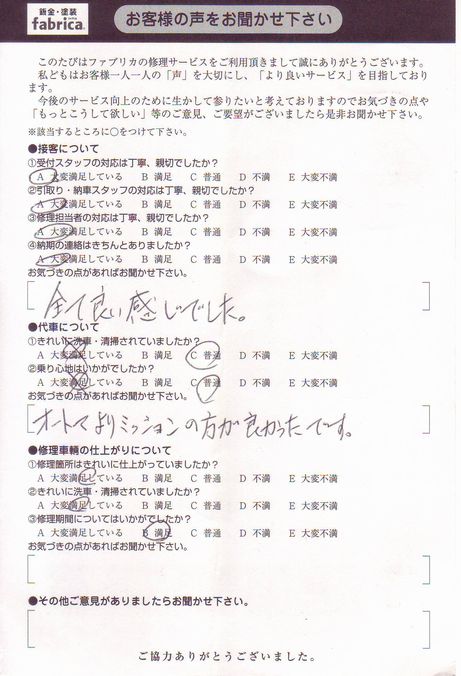 鈑金・塗装
fabrica.
お客様の声をお聞かせ下さい
このたびはファブリカの修理サービスをご利用頂きまして誠にありがとうございます。
私どもはお客様一人一人の「声」を大切にし、「より良いサービス」を目指しており
ます。
今後のサービス向上のために生かして参りたいと考えておりますのでお気づきの点や
「もっとこうして欲しい」等のご意見、ご要望がございましたら是非お聞かせ下さい。
※該当するところに○をつけて下さい。
●接客について
①受付スタッフの対応は丁寧、親切でしたか?
A 大変満足している B 満足 C 普通 D 不満 E 大変不満
②引取り・納車スタッフの対応は丁寧、親切でしたか?
A 大変満足している B 満足 C 普通 D 不満 E 大変不満
③修理担当者の対応は丁寧、親切でしたか?
A 大変満足している B 満足 C 普通 D 不満 E 大変不満
④納期の連絡はきちんとありましたか?
A 大変満足している B 満足 C 普通 D 不満 E 大変不満
お気づきの点があればお聞かせ下さい。
全て良い感じでした。
●代車について
①きれいに洗車・清掃されていましたか?
A 大変満足している B 満足 C 普通 D 不満 E 大変不満
②乗り心地はいかがでしたか?
A 大変満足している B 満足 C 普通 D 不満 E 大変不満
お気づきの点があればお聞かせ下さい。
オートマよりミッションの方が良かったです。
●修理車輌の仕上がりについて
①修理箇所はきれいに仕上がっていましたか?
A 大変満足している B 満足 C 普通 D 不満 E 大変不満
②きれいに洗車・清掃されていましたか?
A 大変満足している B 満足 C 普通 D 不満 E 大変不満
③修理期間についてはいかがでしたか?
A 大変満足している B 満足 C 普通 D 不満 E 大変不満
お気づきの点があればお聞かせ下さい。
●その他ご意見がありましたらお聞かせ下さい。
ご協力ありがとうございました。